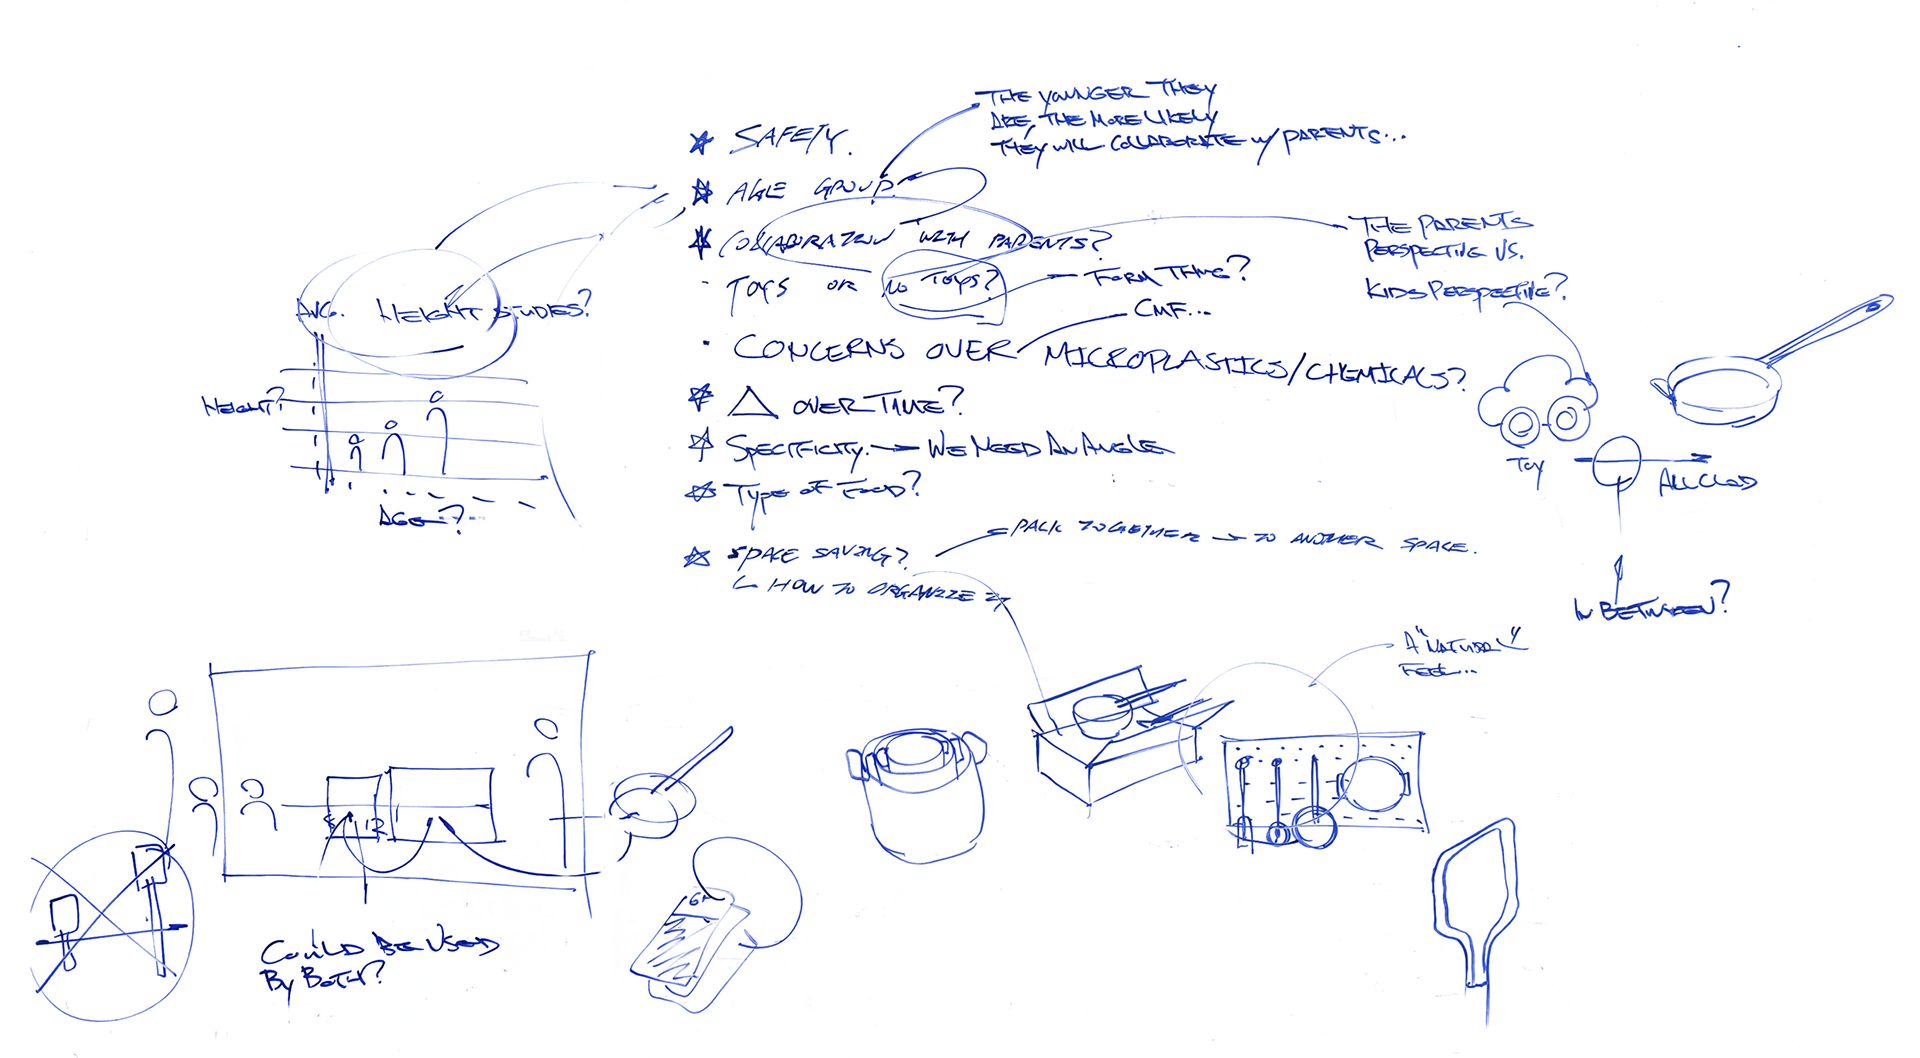 THE YOUNGER THEY
ARE, THE MORE LIKELY
THEY WILL COLLABORATE W/ PARENTS...
SAFETY.
AGE GROUP.
COLLABORATION WITH PARENTS?
TOYS OR NO TOYS?
FORM THING?
CMF...
CONCERNS OVER MICROPLASTICS/CHEMICALS?
△ OVER TIME?
SPECIFICITY. → WE NEED AN ANGLE
TYPE OF FOOD?
SPACE SAVING?
PACK TOGETHER → TO ANOTHER SPACE.
↳ HOW TO ORGANIZE IT
AVG. HEIGHT STUDIES?
HEIGHT?
AGE?
THE PARENTS
PERSPECTIVE VS.
KIDS PERSPECTIVE?
TOY
ALLCLAD
IN BETWEEN?
A "NATURAL"
FEEL...
COULD BE USED
BY BOTH?